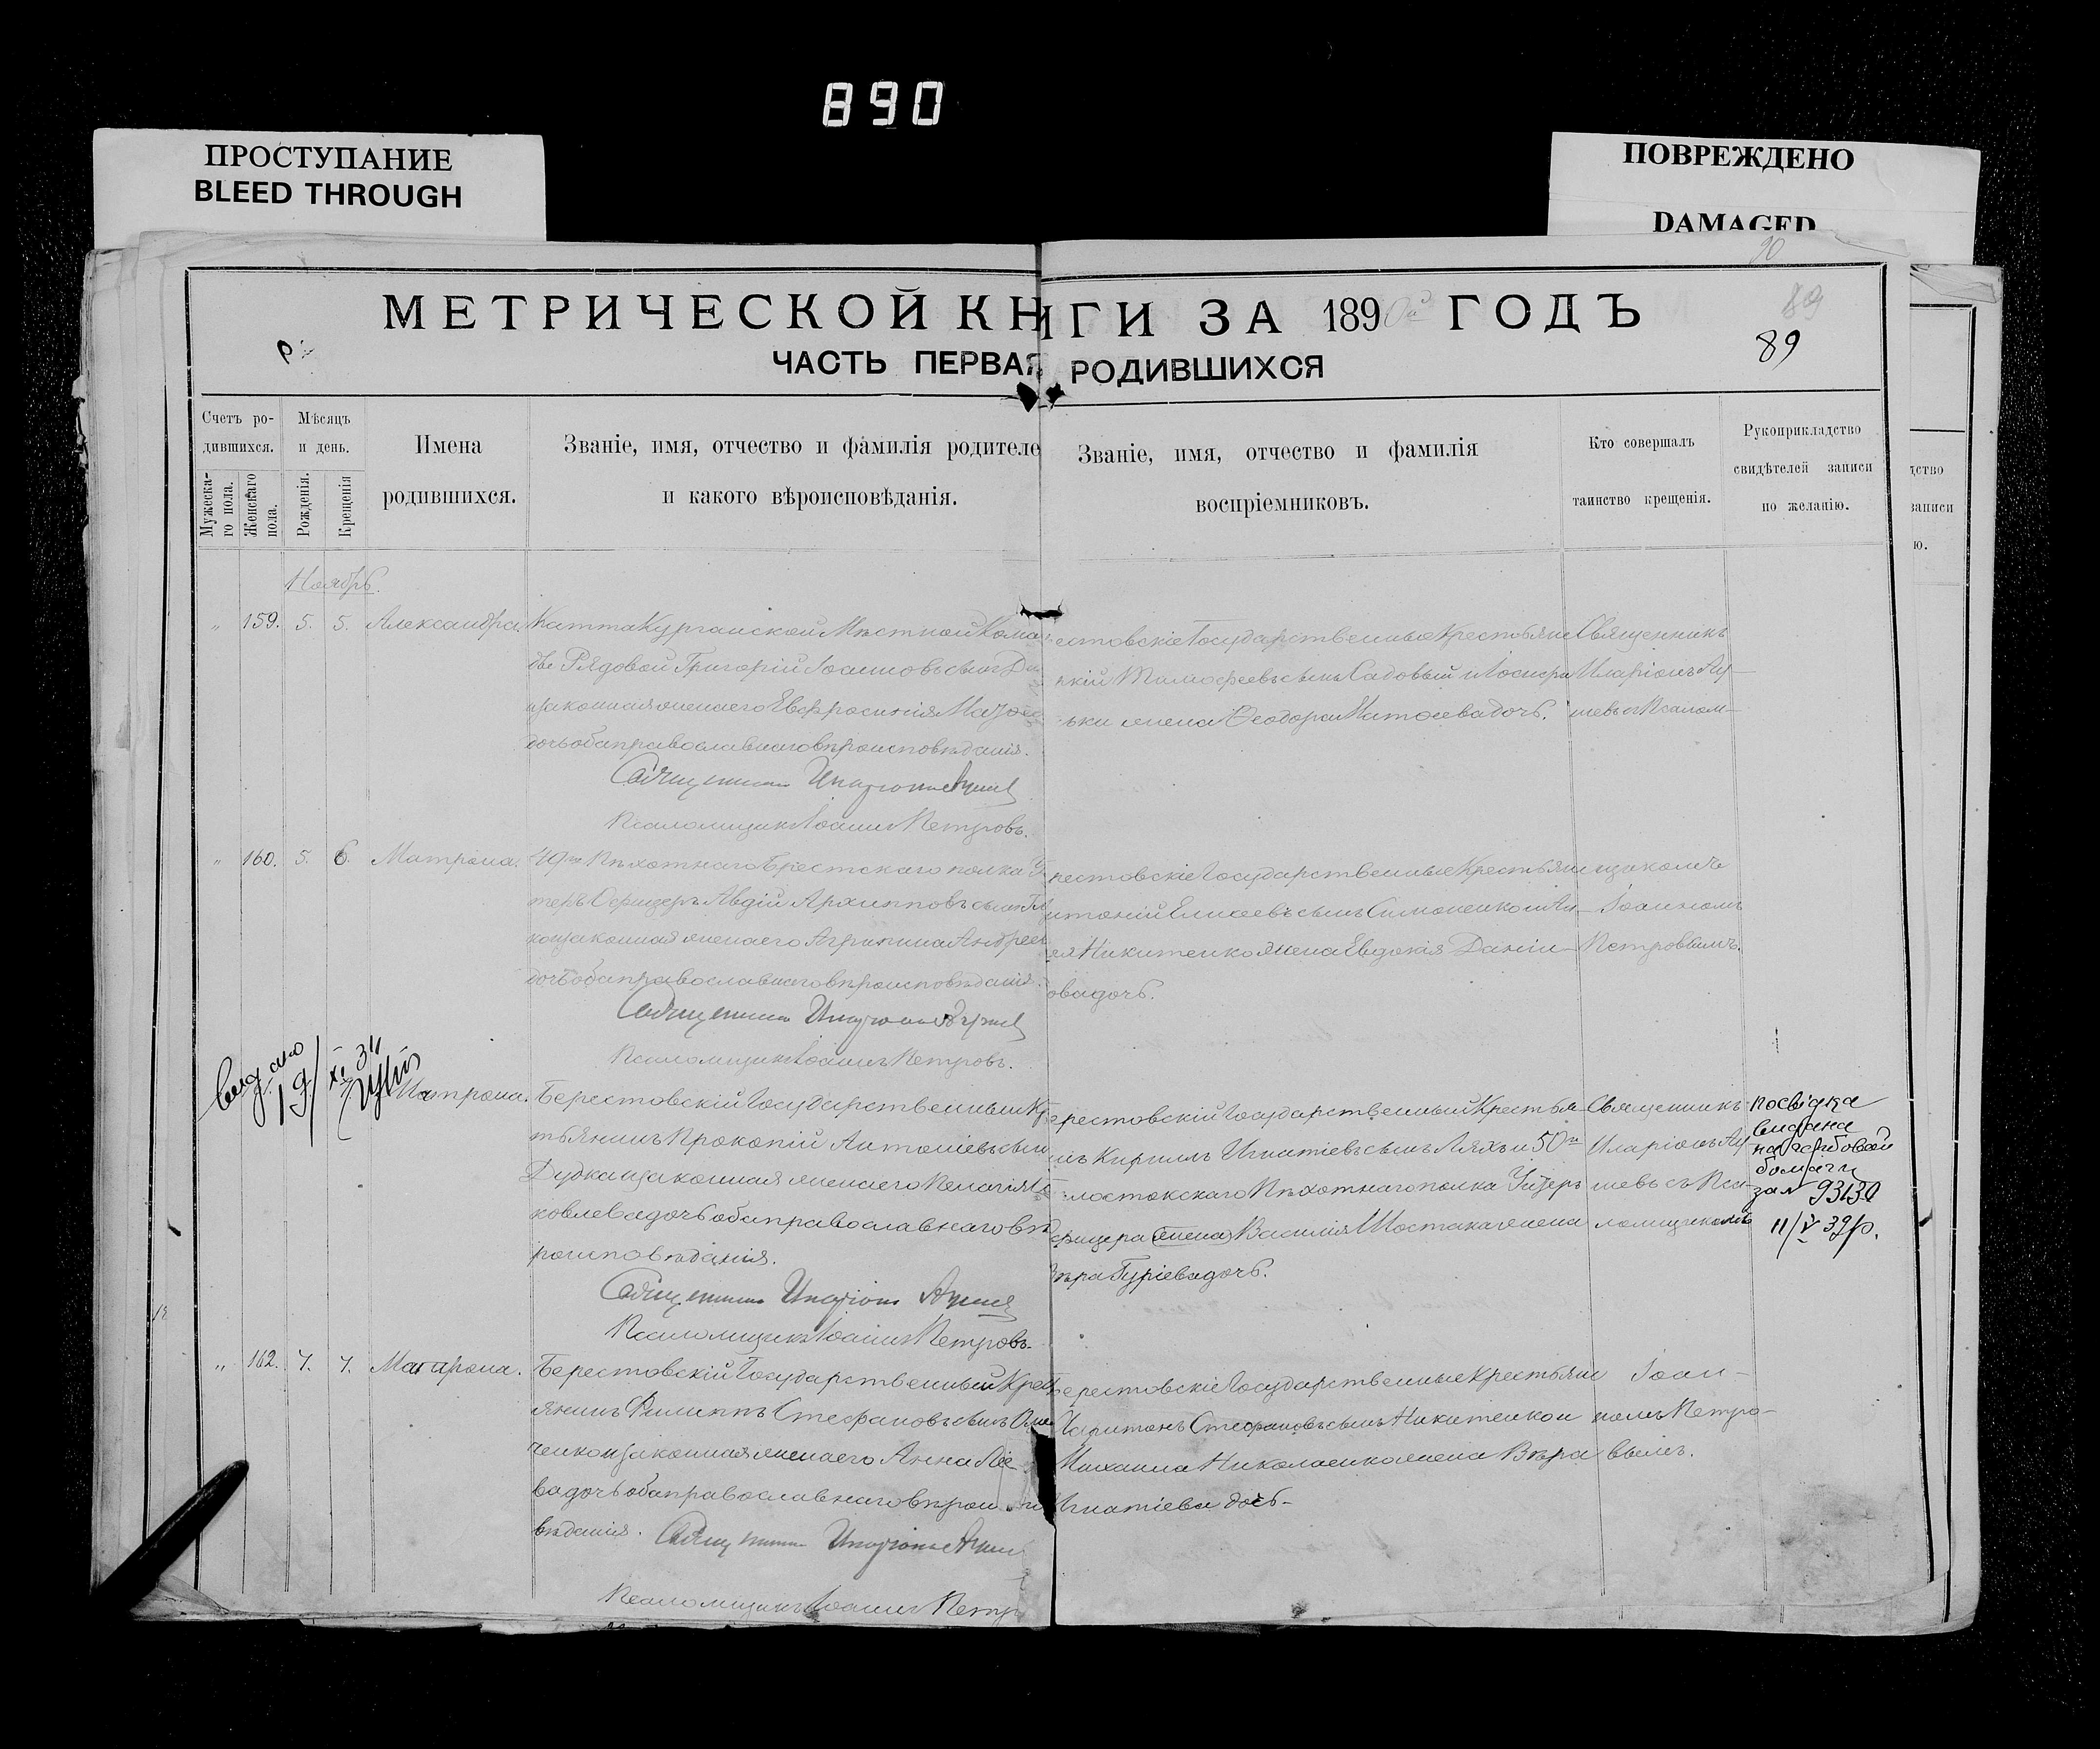 890
ПРОСТУПАНИЕ
BLEED THROUGH
ПОВРЕЖДЕНО
DAMAGED
90
МЕТРИЧЕСКОЙ КНИГИ ЗА 1890й ГОДЪ
89
89
ЧАСТЬ ПЕРВАЯ РОДИВШИХСЯ
Счетъ ро-
дившихся.
Мужеска-
го пола.
Женскаго
пола.
Мѣсяцъ
и день.
Рожденія.
Крещенія
Имена
родившихся.
Званіе, имя, отчество и фамилія родителе
и какого вѣроисповѣданія.
Званіе, имя, отчество и фамилія
воспріемниковъ.
Кто совершалъ
таинство крещенія.
Рукоприкладство
свидѣтелей записи
по желанію.
дство
записи
ю.
Ноябрь.
„ 159. 5. 5. Александра.
КаттаКурганской Мѣстной Кома
дѣ Рядовой Григорій Іоанновъ сынъ
и законная жена его Евфросинія
дочь оба православнаго вѣроисповѣданія.
Священникъ Иларіонъ
Псаломщикъ Іоаннъ Петровъ.
естовскіе Государственные Крестьяне
кій Тимофеевъ сынъ Садовый и Іосифа
ьки жена Ѳеодора Матѳева дочь.
Священникъ
Иларіонъ
шевъ съ Псалом-
„ 160. 5. 6. Матрона.
49го Пѣхотнаго Брестскаго полка У
теръ Офицеръ Авдій Архипповъ сынъ
ко и законная жена его Агрипина Андреев
дочь оба православнаго вѣроисповѣданія.
Священникъ Иларіонъ
Псаломщикъ Іоаннъ Петровъ.
рестовскіе Государственные Крестьяне
нтоній Елисеевъ сынъ Симоненко и Ан-
ея Никитенко жена Евдокія Даніи-
ова дочь.
щикомъ
Іоанномъ
Петровымъ.
видано
19/XI 34
Матрона.
Берестовскій Государственный Кр
тьянинъ Прокопій Антоніевъ сынъ
Дудка и законная жена его Пелагія
ковлева дочь оба православнаго вѣ
роисповѣданія.
Священникъ Иларіонъ
Псаломщикъ Іоаннъ Петровъ.
ерестовскій Государственный Крестья
нъ Кириллъ Игнатіевъ сынъ Ляхъ и 50го
лостокскаго Пѣхотнаго полка Унтеръ
фицера (жена) Василія Шостака жена
ѣра Гуріева дочь.
Священникъ
Иларіонъ
шевъ съ Пса-
ломщикомъ
посвідка
видана
на гербовой
бомаги
за № 93130
11/V 39р.
„ 162. 7. 7. Матрона.
Берестовскій Государственный Крест
янинъ Филиппъ Стефановъ сынъ
ченко и законная жена его Анна
ва дочь оба православнаго вѣроиспо
вѣданія.
Священникъ Иларіонъ
Псаломщикъ Іоаннъ Петр
ерестовскіе Государственные Крестьяне
Харитонъ Стефановъ сынъ Никитенко и
Михаила Николаенко жена Вѣра
Игнатіева дочь-
Іоан-
номъ Петро-
вымъ.